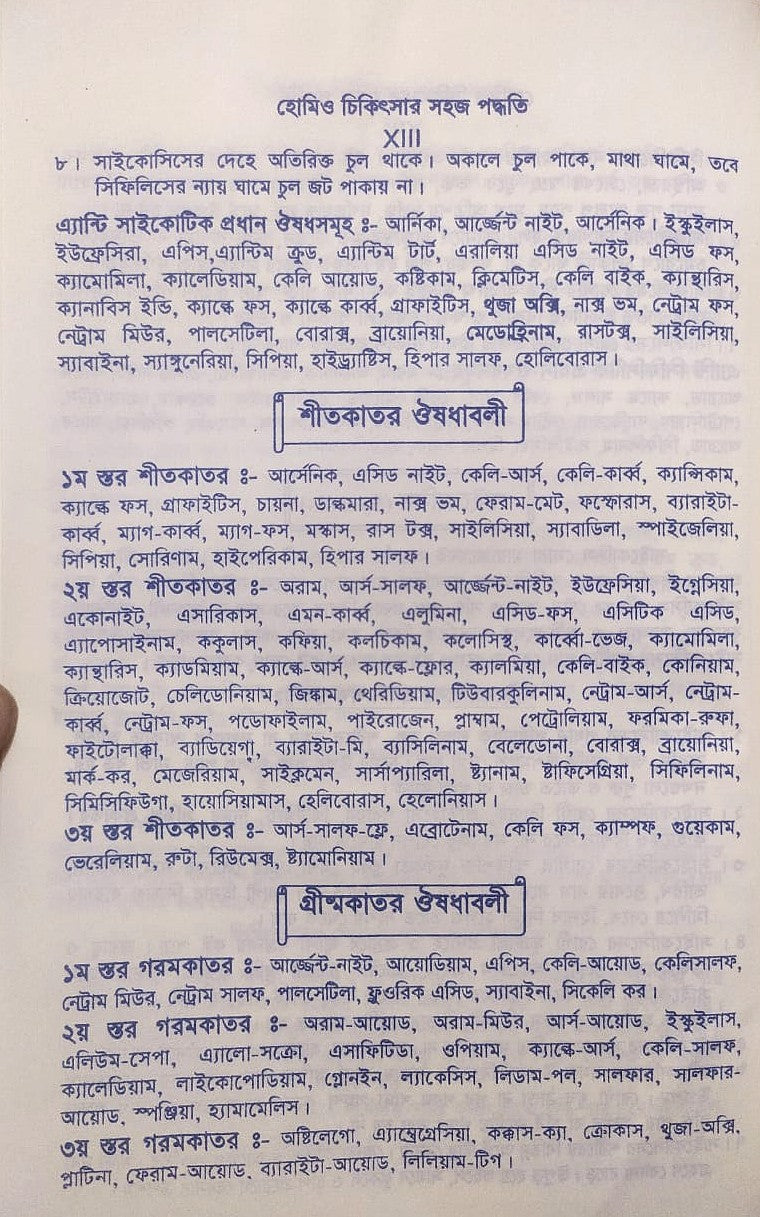 হোমিও চিকিৎসার সহজ পদ্ধতি
XIII
৮। সাইকোসিসের দেহে অতিরিক্ত চুল থাকে। অকালে চুল পাকে, মাথা ঘামে, তবে
সিফিলিসের ন্যায় ঘামে চুল জট পাকায় না।
এ্যান্টি সাইকোটিক প্রধান ঔষধসমূহ ঃ- আর্নিকা, আর্জ্জেন্ট নাইট, আর্সেনিক। ইস্কুইলাস,
ইউফ্রেসিরা, এপিস,এ্যান্টিম ক্রুড, এ্যান্টিম টার্ট, এরালিয়া এসিড নাইট, এসিড ফস,
ক্যামোমিলা, ক্যালেডিয়াম, কেলি আয়োড, কষ্টিকাম, ক্লিমেটিস, কেলি বাইক, ক্যান্থারিস,
ক্যানাবিস ইন্ডি, ক্যাল্কে ফস, ক্যাল্কে কার্ব্ব, গ্রাফাইটিস, থুজা অক্সি, নাক্স ভম, নেট্রাম ফস,
নেট্রাম মিউর, পালসেটিলা, বোরাক্স, ব্রায়োনিয়া, মেডোহ্রিনাম, রাসটক্স, সাইলিসিয়া,
স্যাবাইনা, স্যাঙ্গুনেরিয়া, সিপিয়া, হাইড্র্যাষ্টিস, হিপার সালফ, হেলিবোরাস।
শীতকাতর ঔষধাবলী
১ম স্তর শীতকাতর ঃ- আর্সেনিক, এসিড নাইট, কেলি-আর্স, কেলি-কার্ব্ব, ক্যাপ্সিকাম,
ক্যাল্কে ফস, গ্রাফাইটিস, চায়না, ডাল্কামারা, নাক্স ভম, ফেরাম-মেট, ফস্ফোরাস, ব্যারাইটা-
কার্ব্ব, ম্যাগ-কার্ব্ব, ম্যাগ-ফস, মস্কাস, রাস টক্স, সাইলিসিয়া, স্যাবাডিলা, স্পাইজেলিয়া,
সিপিয়া, সোরিণাম, হাইপেরিকাম, হিপার সালফ।
২য় স্তর শীতকাতর ঃ- অরাম, আর্স-সালফ, আর্জ্জেন্ট-নাইট, ইউফ্রেসিয়া, ইগ্নেসিয়া,
একোনাইট, এসারিকাস, এমন-কার্ব্ব, এলুমিনা, এসিড-ফস, এসিটিক এসিড,
এ্যাপোসাইনাম, ককুলাস, কফিয়া, কলচিকাম, কলোসিন্থ, কার্ব্বো-ভেজ, ক্যামোমিলা,
ক্যান্থারিস, ক্যাডমিয়াম, ক্যাল্কে-আর্স, ক্যাল্কে-ফ্লোর, ক্যালমিয়া, কেলি-বাইক, কোনিয়াম,
ক্রিয়োজোট, চেলিডোনিয়াম, জিঙ্কাম, থেরিডিয়াম, টিউবারকুলিনাম, নেট্রাম-আর্স, নেট্রাম-
কার্ব্ব, নেট্রাম-ফস, পডোফাইলাম, পাইরোজেন, প্লাম্বাম, পেট্রোলিয়াম, ফরমিকা-রুফা,
ফাইটোলাক্কা, ব্যাডিয়েগা, ব্যারাইটা-মি, ব্যাসিলিনাম, বেলেডোনা, বোরাক্স, ব্রায়োনিয়া,
মার্ক-কর, মেজেরিয়াম, সাইক্লমেন, সার্সাপ্যারিলা, ষ্ট্যানাম, ষ্টাফিসেগ্রিয়া, সিফিলিনাম,
সিমিসিফিউগা, হায়োসিয়ামাস, হেলিবোরাস, হেলোনিয়াস।
৩য় স্তর শীতকাতর ঃ- আর্স-সালফ-ফ্লে, এব্রোটেনাম, কেলি ফস, ক্যাম্পফ, গুয়েকাম,
ভেরেলিয়াম, রুটা, রিউমেক্স, ষ্ট্যামোনিয়াম।
গ্রীষ্মকাতর ঔষধাবলী
১ম স্তর গরমকাতর ঃ- আর্জ্জেন্ট-নাইট, আয়োডিয়াম, এপিস, কেলি-আয়োড, কেলিসালফ,
নেট্রাম মিউর, নেট্রাম সালফ, পালসেটিলা, ফ্লুওরিক এসিড, স্যাবাইনা, সিকেলি কর।
২য় স্তর গরমকাতর ঃ- অরাম-আয়োড, অরাম-মিউর, আর্স-আয়োড, ইস্কুইলাস,
এলিউম-সেপা, এ্যালো-সক্রো, এসাফিটিডা, ওপিয়াম, ক্যাল্কে-আর্স, কেলি-সালফ,
ক্যালেডিয়াম, লাইকোপোডিয়াম, গ্লোনইন, ল্যাকেসিস, লিডাম-পল, সালফার, সালফার-
আয়োড, স্পঞ্জিয়া, হ্যামামেলিস।
৩য় স্তর গরমকাতর ঃ- অষ্টিলেগো, এ্যাম্ব্রেগ্রেসিয়া, কক্কাস-ক্যা, ক্রোকাস, থুজা-অক্সি,
প্লাটিনা, ফেরাম-আয়োড, ব্যারাইটা-আয়োড, লিলিয়াম-টিগ।